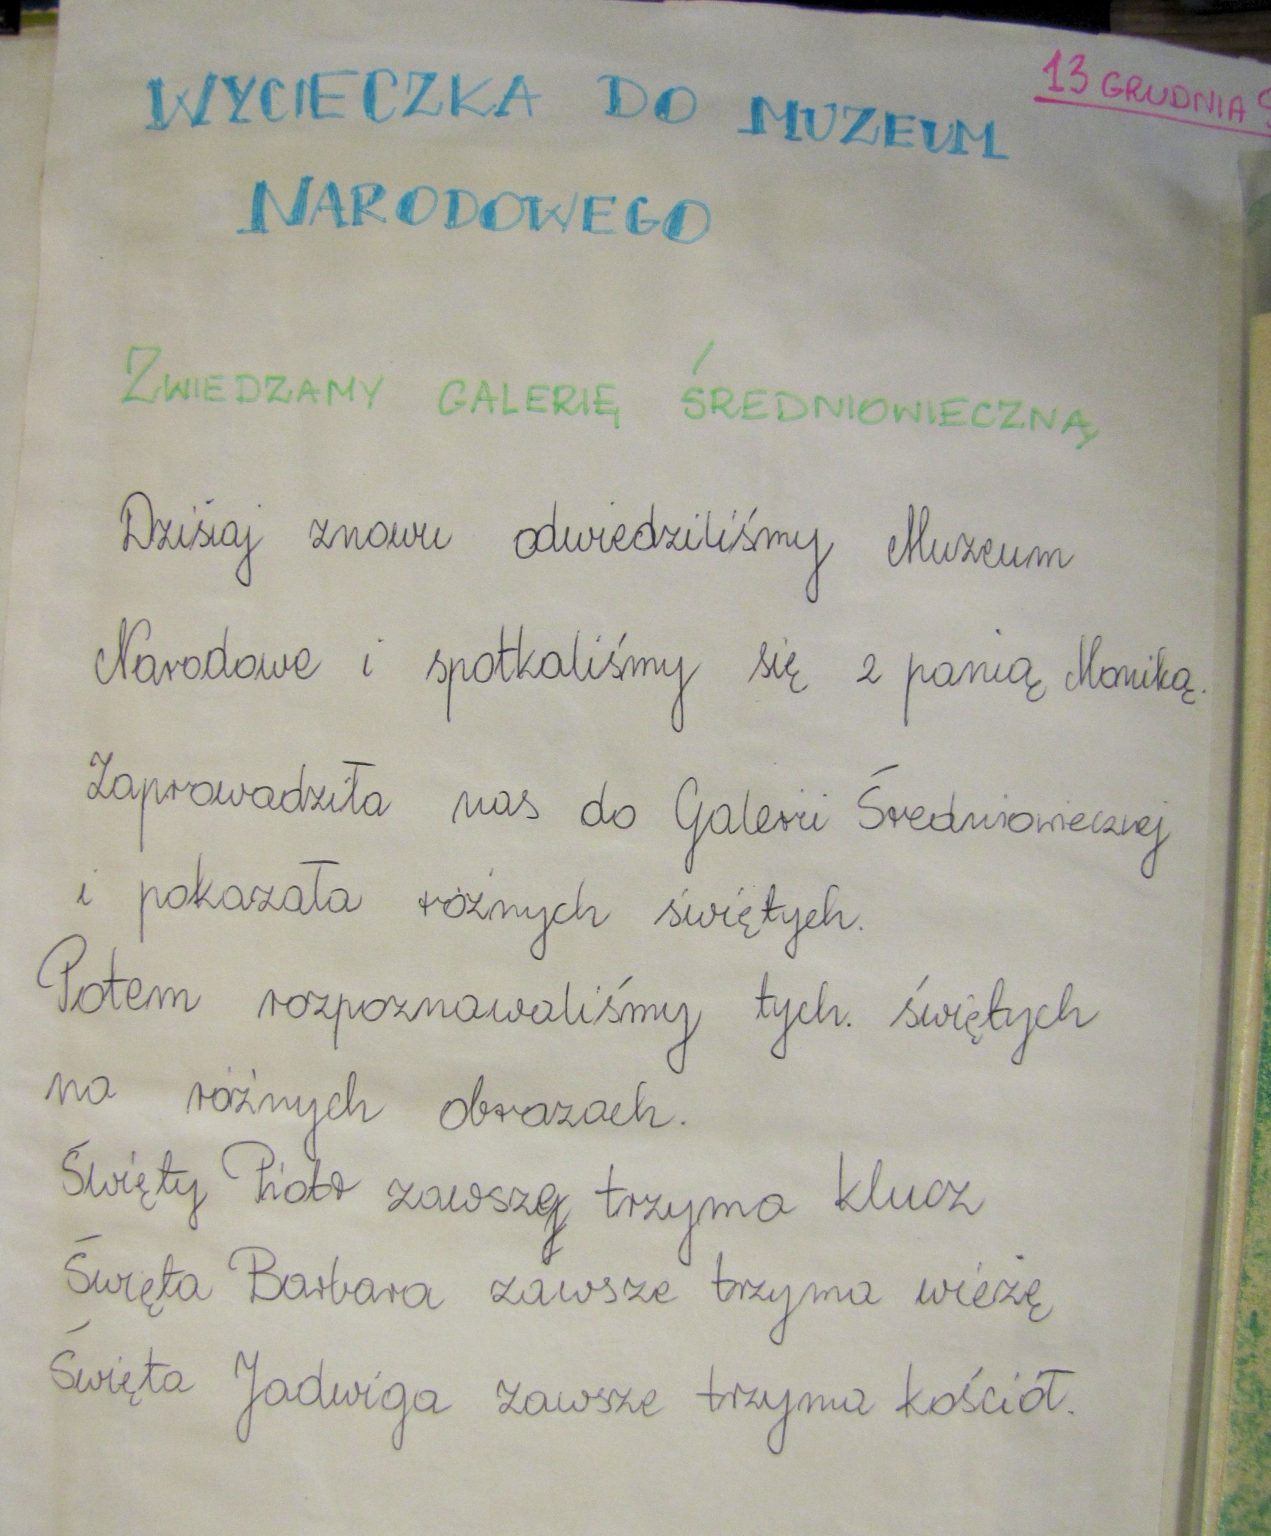 13 GRUDNIA
WYCIECZKA DO MUZEUM
NARODOWEGO
ZWIEDZAMY GALERIĘ ŚREDNIOWIECZNĄ
Dzisiaj znowu odwiedziliśmy Muzeum
Narodowe i spotkaliśmy się z panią Moniką.
Zaprowadziła nas do Galerii Średniowiecznej
i pokazała różnych świętych.
Potem rozpoznawaliśmy tych. świętych
na różnych obrazach.
Święty Piotr zawszę trzyma klucz
Święta Barbara zawsze trzyma wieżę
Święta Jadwiga zawsze trzyma kościół.